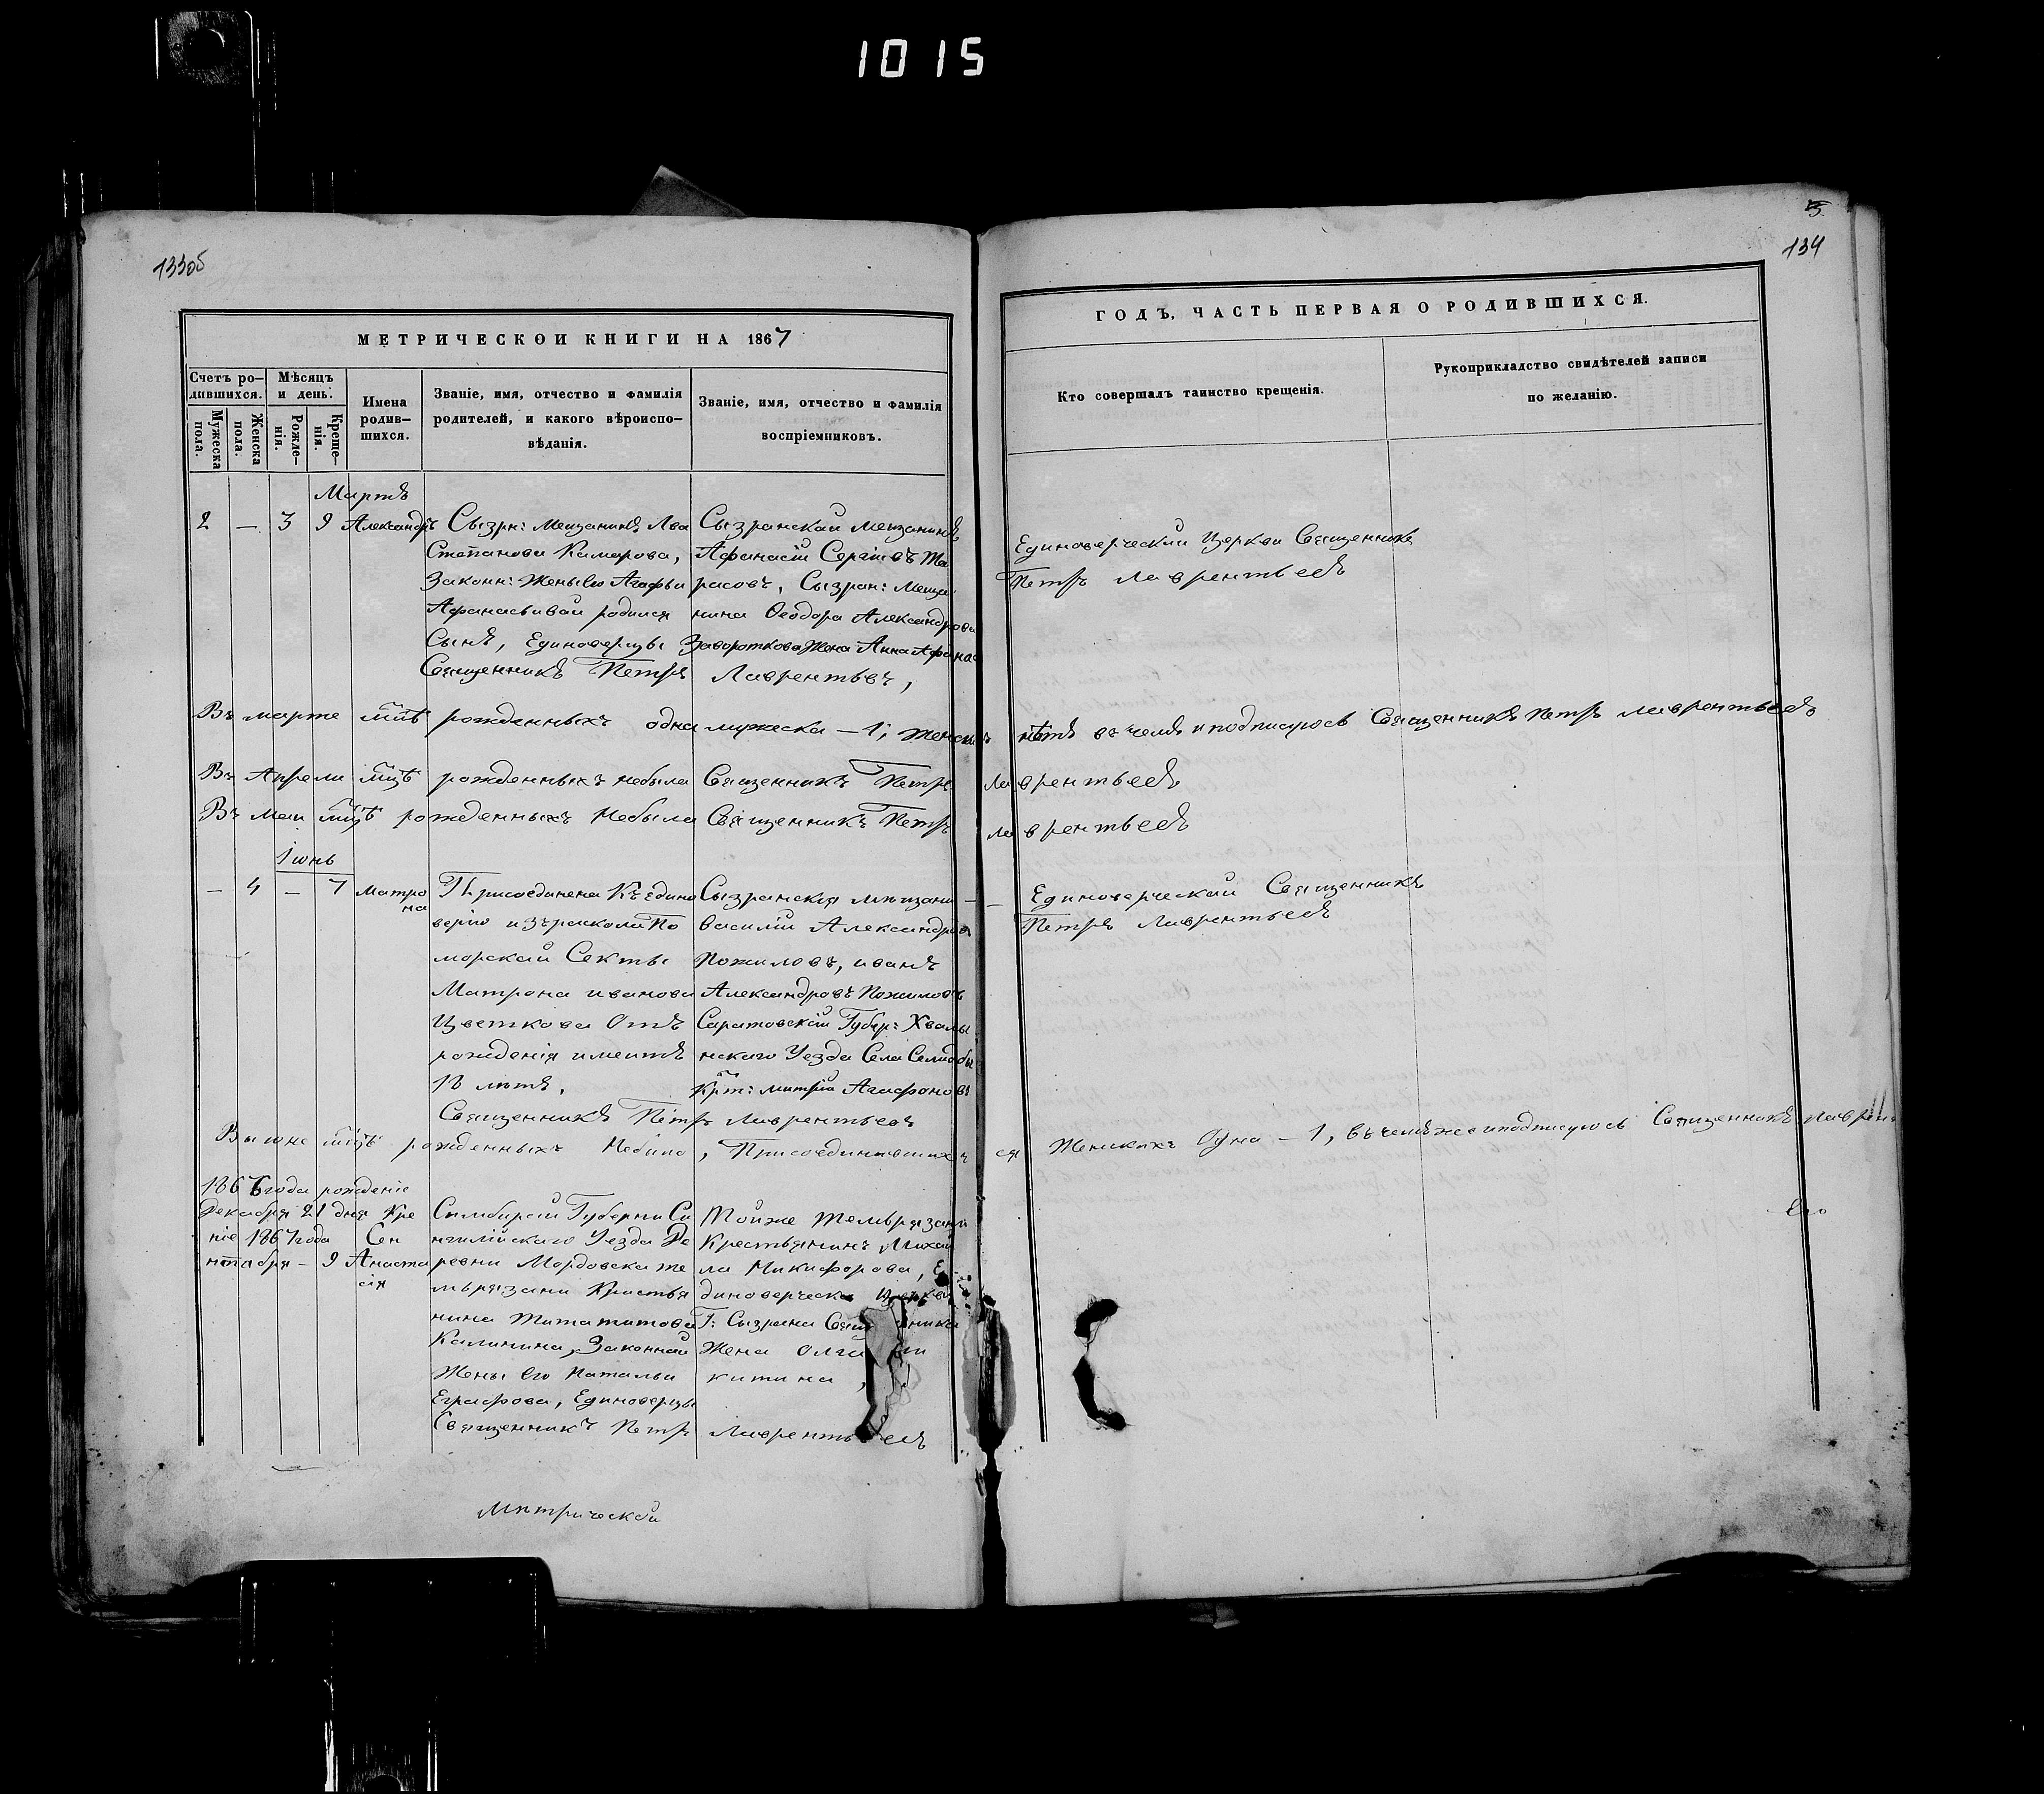 1015
133об
5.
134
МЕТРИЧЕСКОИ КНИГИ НА 1867
ГОДЪ, ЧАСТЬ ПЕРВАЯ О РОДИВШИХСЯ.
Счетъ ро-
дившихся.
Мужеска
пола.
Женска
пола.
Мѣсяцъ
и день.
Рожде-
нія.
Креще-
нія.
Имена
родив-
шихся.
Званіе, имя, отчество и фамилія
родителей, и какого вѣроиспо-
вѣданія.
Званіе, имя, отчество и фамилія
воспріемниковъ.
Кто совершалъ таинство крещенія.
Рукоприкладство свидѣтелей записи
по желанію.
Мартъ
2 — 3 9 Александръ
Сызрн: Мещанинъ Лва
Степанова Камарова,
Законн: Жены его Агафьи
Афанасьивай родился
Сынъ, Единоверцы
Священникъ Петръ Лаврентьвъ,
Сызранскаи мещанинъ
Афанасіи Сергіевъ Та
расовъ, Сызран: Меща
нина Ѳеодора Александрова
Завороткова Жена Анна Афанас
Единоверческаи Церкви Священникъ
Петръ Лаврентьевъ
Въ марте мцѣ рожденныхъ одна мужеска — 1; женскихъ нѣтъ въ чемъ и подписуюсь Священникъ Петръ Лаврентьевъ
Въ Апрели мцѣ рожденныхъ небыла Священникъ Петръ Лаврентьевъ
Въ Маи мцѣ рожденныхъ Небыла Священникъ Петръ Лаврентьевъ
Iюнь
— 4 — 7 Матро
на
Присоединена Къ Едино
верію изъ раскола По
морскаи Секты
Матрона иванова
Цветкова Отъ
рожденія имеитъ
18 летъ,
Священникъ Петръ Лаврентьевъ
Сызранскія мещани
василіи Александровъ
Пожиловъ, иванъ
Александровъ Пожиловъ
Саратовскіи Губер: Хвалы
нскаго Уезда Села
Крт: митрiи Агафоновъ
— Единоверческаи Священникъ
Петръ Лаврентьевъ
Въ июне мцѣ рожденныхъ Небыло, Присоединившихся Женскихъ Одна — 1, въ чемъ же и подписуюсь Священникъ Лаврен
1866 года рожденіе
Декабря 21 дня Кре
ніе 1867 года Сен
нтября — 9 Анаста
сія
Симбирскаи Губерни Си
нгилійскаго Уезда Де
ревни Мордовска те
мьрязани Кристья
нина Тита титова
Калинина, Законнаи
Жены его Натальи
Еграфова, Единоверцы
Священникъ Петръ Лаврентьевъ
Тойже темьрязани
Крестьянинъ Михаи
ла Никифорова, Е
диноверческа церкви
Г: Сызрана Священника
Жена олга
китина,
Его
Митрическои